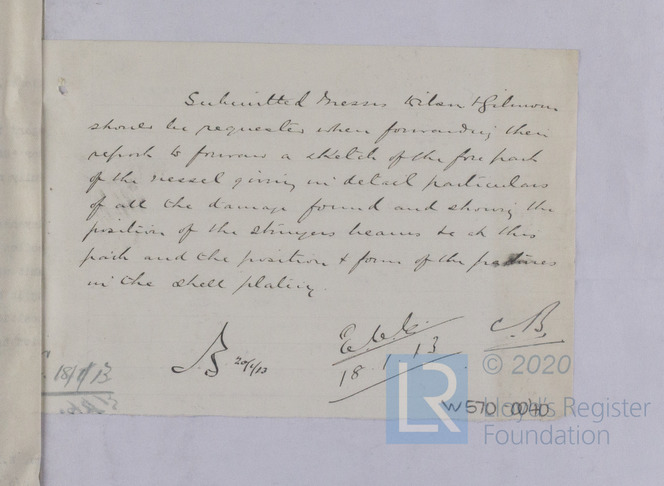 Submitted Messrs Wilson & Gilmour
should be requested when forwarding their
report to forward a sketch of the fore part
of the vessel giving in detail particulars
of all the damage found and showing the
position of the stringers beams &c at this
part and the position & form of the fractures
in the shell plating.
18/1/13
20/1/13
18.1.13
C.B.
© 2020
W570-0040
LR
Lloyd's Register
Foundation